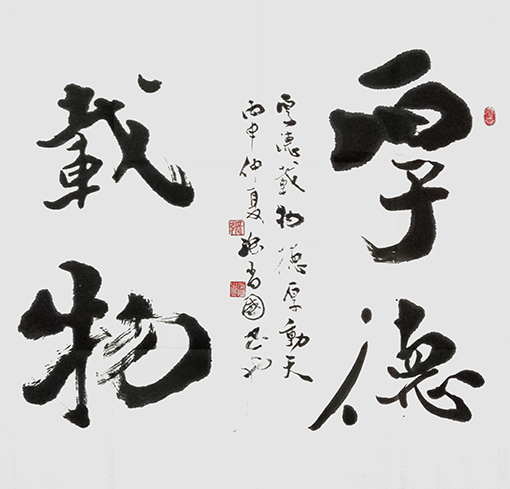 厚德
厚德載物德厚動天
丙申仲夏尚國書
載物